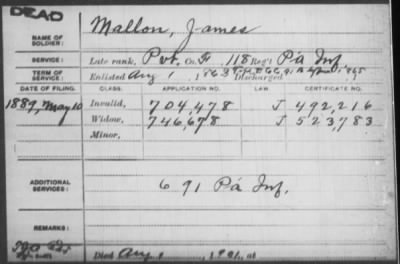 DEAD
NAME OF SOLDIER: Mallon, James
SERVICE: Late rank, Pvt. Co. F, 118 Reg't Pa Inf.
TERM OF SERVICE: Enlisted Aug 1, 1863 Discharged 1865
DATE OF FILING. CLASS. APPLICATION NO. LAW. CERTIFICATE NO.
1889, May 10 Invalid, 704,478 J 492,216
Widow, 746,678 J 523,783
Minor,
ADDITIONAL SERVICES: G 91 Pa Inf.
REMARKS:
Died Aug 1, 1901, at